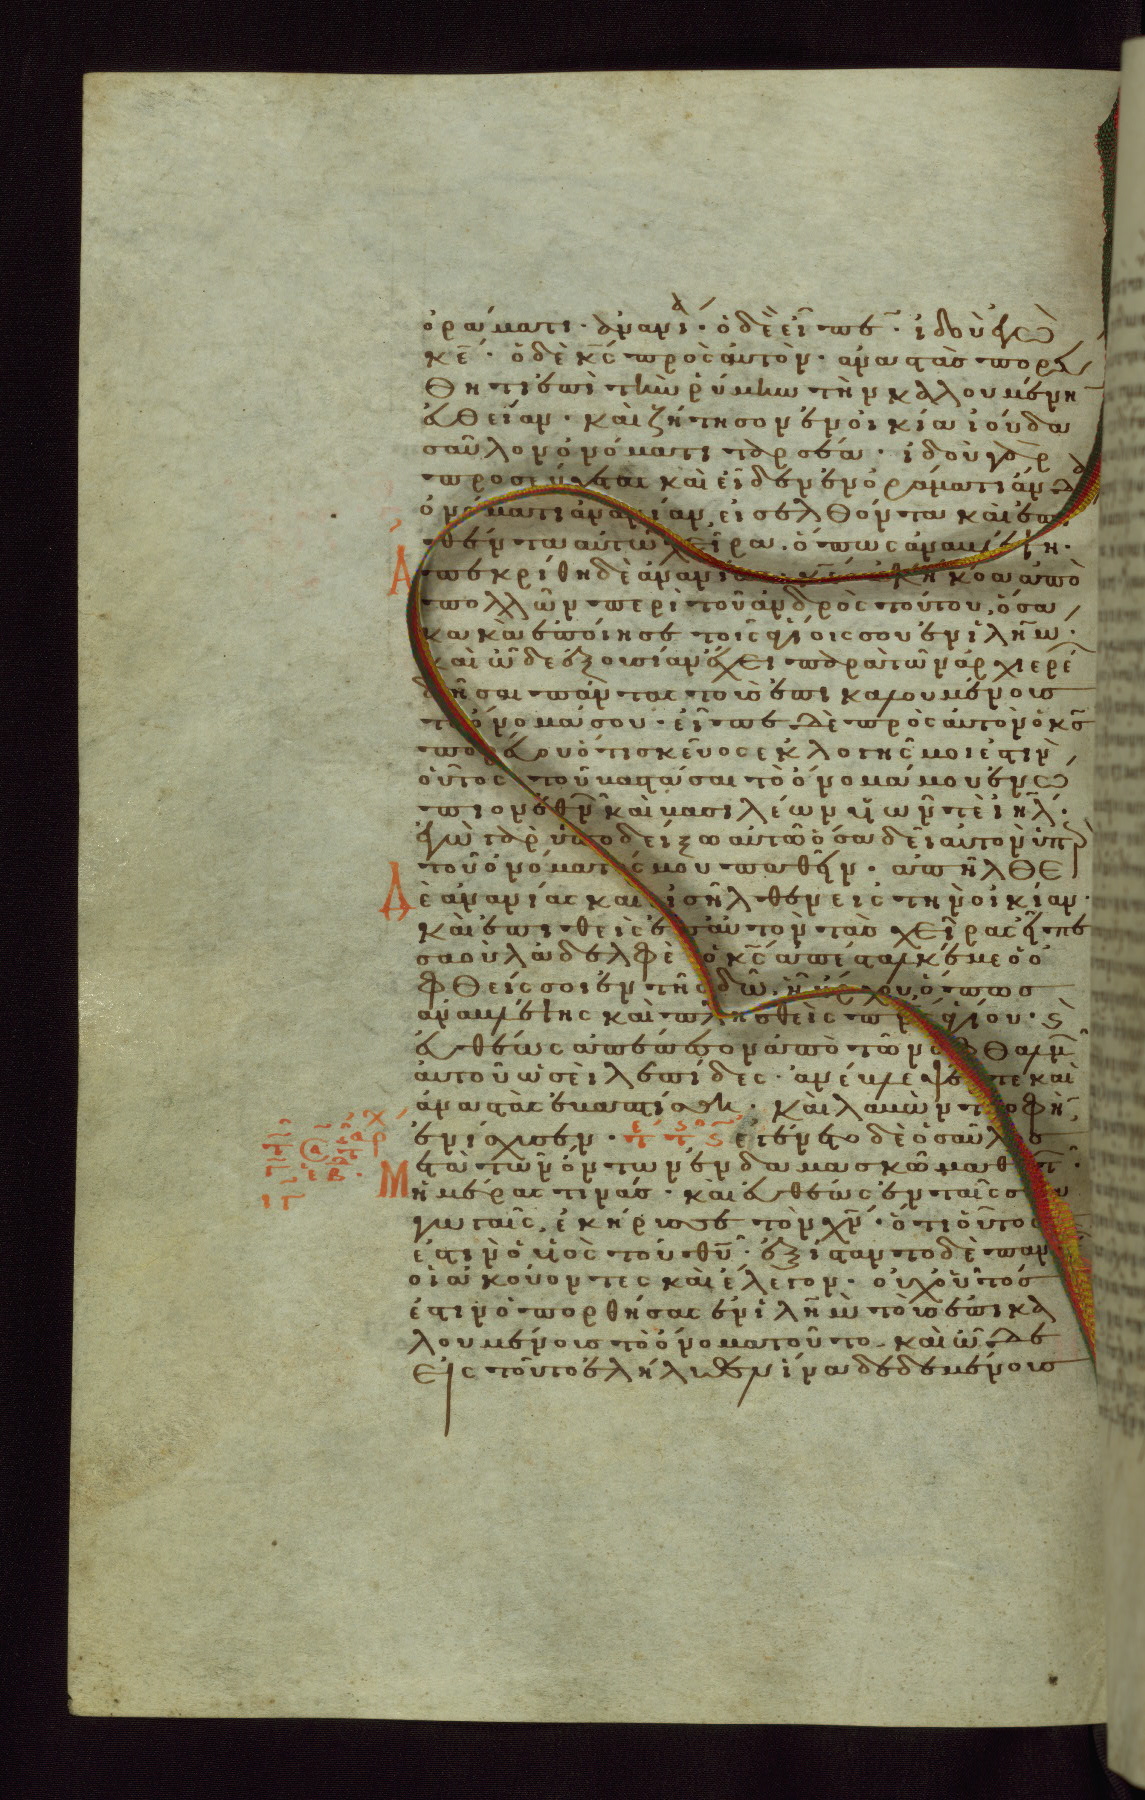 ὁράματι· ἀνανί· ὁ δὲ εἶπε· ἰδοὺ ἐγὼ
κε̅· ὁ δὲ κς̅ πρὸς αὐτὸν· ἀναστὰς πορεύ
θητι ἐπὶ τὴν ῥύμην τὴν καλουμένη
εὐθεῖαν· καὶ ζήτησον ἐν οἰκία ἰούδα
σαῦλον ὀνόματι ταρσέα· ἰδοὺ γὰρ
προσεύχεται καὶ εἶδεν ἐν ὁράματι ἄνδ
ὀνόματι ἀνανίαν, εἰσελθόντα καὶ ἐπι
θέντα αὐτῶ χεῖρα· ὅπως ἀναβλέψη·
Ἀπεκρίθη δὲ ἀνανίας· κε̅ ἀκήκοα ἀπὸ
πολλῶν περὶ τοῦ ἀνδρὸς τούτου, ὅσα
κακὰ ἐποίησε τοῖς ἁγίοις σου ἐν ἰλη̅μ·
καὶ ὧδε ἐξουσίαν ἔχει παρὰ τῶν ἀρχιερέ
δῆσαι πάντας τοὺς ἐπικαλουμένους
τὸ ὄνομά σου· εἶπε δὲ πρὸς αὐτὸν ὁ κς̅
πορεύου ὅτι σκεῦος ἐκλογῆς μοι ἐστὶν
οὗτος τοῦ βαστάσαι τὸ ὄνομά μου ἐνώ
πιον ἐθν καὶ βασιλέων υἱῶν τε ἰηλ̅·
ἐγὼ γὰρ ὑποδείξω αὐτῶ ὅσα δεῖ αὐτὸν ὑπὲρ
τοῦ ὀνόματός μου παθεῖν· ἀπῆλθε
Δὲ ἀνανίας καὶ εἰσῆλθεν εἰς τὴν οἰκίαν·
καὶ ἐπιθεὶς ἐπ αὐτὸν τὰς χεῖρας εἶπε
σαοὺλ ἀδελφὲ ὁ κς̅ ἀπέσταλκέ με ὁ ὀ
φθείς σοι ἐν τῆ ὁδῶ ἧ ἤρχου, ὅπως
ἀναβλέψης καὶ πλησθεὶς πν̅ς ἁγίου· ϗ
εὐθέως ἀπέπεσον ἀπὸ τῶν ὀφθαλμ
αὐτοῦ ὡσεὶ λεπίδες· ἀνέβλεψέ τε καὶ
ἀναστὰς ἐβαπτίσθη· καὶ λαβὼν τροφὴ
ἐνίσχυσεν· ἐγένετο δὲ ὁ σαῦλος
Μετὰ τῶν ὄντων ἐν δαμασκῶ μαθητ
ἡμέρας τινάς· καὶ εὐθέως ἐν ταῖς συνα
γωγαῖς ἐκήρυσσε τὸν χν̅· ὅτι οὗτος
ἐστὶν ὁ υἱὸς τοῦ θυ̅· ἐξίσταντο δὲ παν
οἱ ἀκούοντες καὶ ἔλεγον· οὐχ οὗτός
ἐστιν ὁ πορθήσας ἐν ἰλη̅μ τοὺς ἐπικα
λουμένους τὸ ὄνομα τοῦτο· καὶ ὧδε
εἰς τοῦτο ἐλήλυθεν ἵνα δεδεμένους